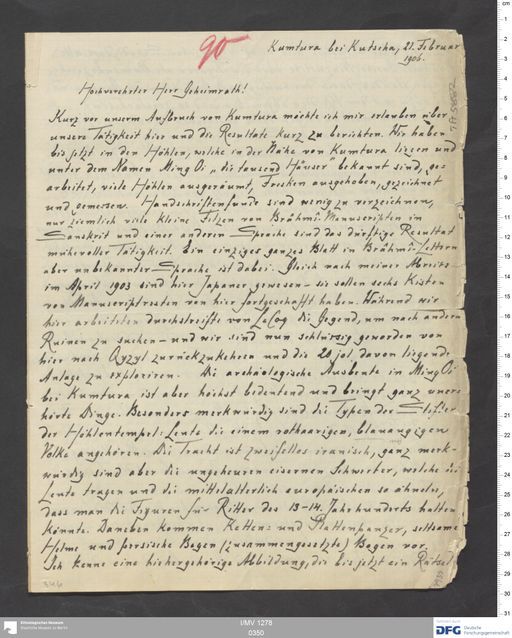 90
Kumtura bei Kutscha, 21. Februar
1906.
Hochverehrter Herr Geheimrath!
Kurz vor unserm Aufbruch von Kumtura möchte ich mir erlauben über
unsere Tätigkeit hier und die Resultate kurz zu berichten. Wir haben
bis jetzt in den Höhlen, welche in der Nähe von Kumtura liegen und
unter dem Namen Ming Oi „die tausend Häuser" bekannt sind, ge-
arbeitet, viele Höhlen ausgeräumt, Fresken ausgehoben, gezeichnet
und gemessen. Handschriftenfunde sind wenig zu verzeichnen,
nur ziemlich viele kleine Fitzen von Brâhmî-Manuscripten in
Sanskrit und einer anderen Sprache sind das dürftige Resultat
mühevoller Tätigkeit. Ein einziges ganzes Blatt in Brâhmî-Lettern
aber unbekannter Sprache ist dabei. Gleich nach meiner Abreise
im April 1903 sind hier Japaner gewesen - sie sollen sechs Kisten
von Manuscriptresten von hier fortgeschafft haben. Während wir
hier arbeiteten durchstreifte von LeCoq die Gegend, um nach andern
Ruinen zu suchen - und wir sind nun schlüssig geworden von
hier nach Qyzyl zurückzukehren und die 20 jol. davon liegende
Anlage zu exploriren. Die archäologische Ausbeute in Ming Oi
bei Kumtura ist aber höchst bedeutend und bringt ganz uner-
hörte Dinge. Besonders merkwürdig sind die Typen der Stifter
der Höhlentempel: Leute die einem rothaarigen, blauaugigen
Volke angehören. Die Tracht ist zweifellos iranisch, ganz merk-
würdig sind aber die ungeheuren eisernen Schwerter, welche die
Leute tragen und die mittelalterlich europäischen so ähneln,
dass man die Figuren für Ritter des 13-14. Jahrhunderts halten
könnte. Daneben kommen Ketten- und Plattenpanzer, seltsame
Helme und persische Bogen (zusammengesetzte) Bogen vor.
Ich kenne eine hiehergehörige Abbildung, die bis jetzt ein Rätsel
Ethnologisches Museum
Staatliche Museen zu Berlin
I/MV 1278
0350
DFG
Deutsche
Forschungsgemeinschaft